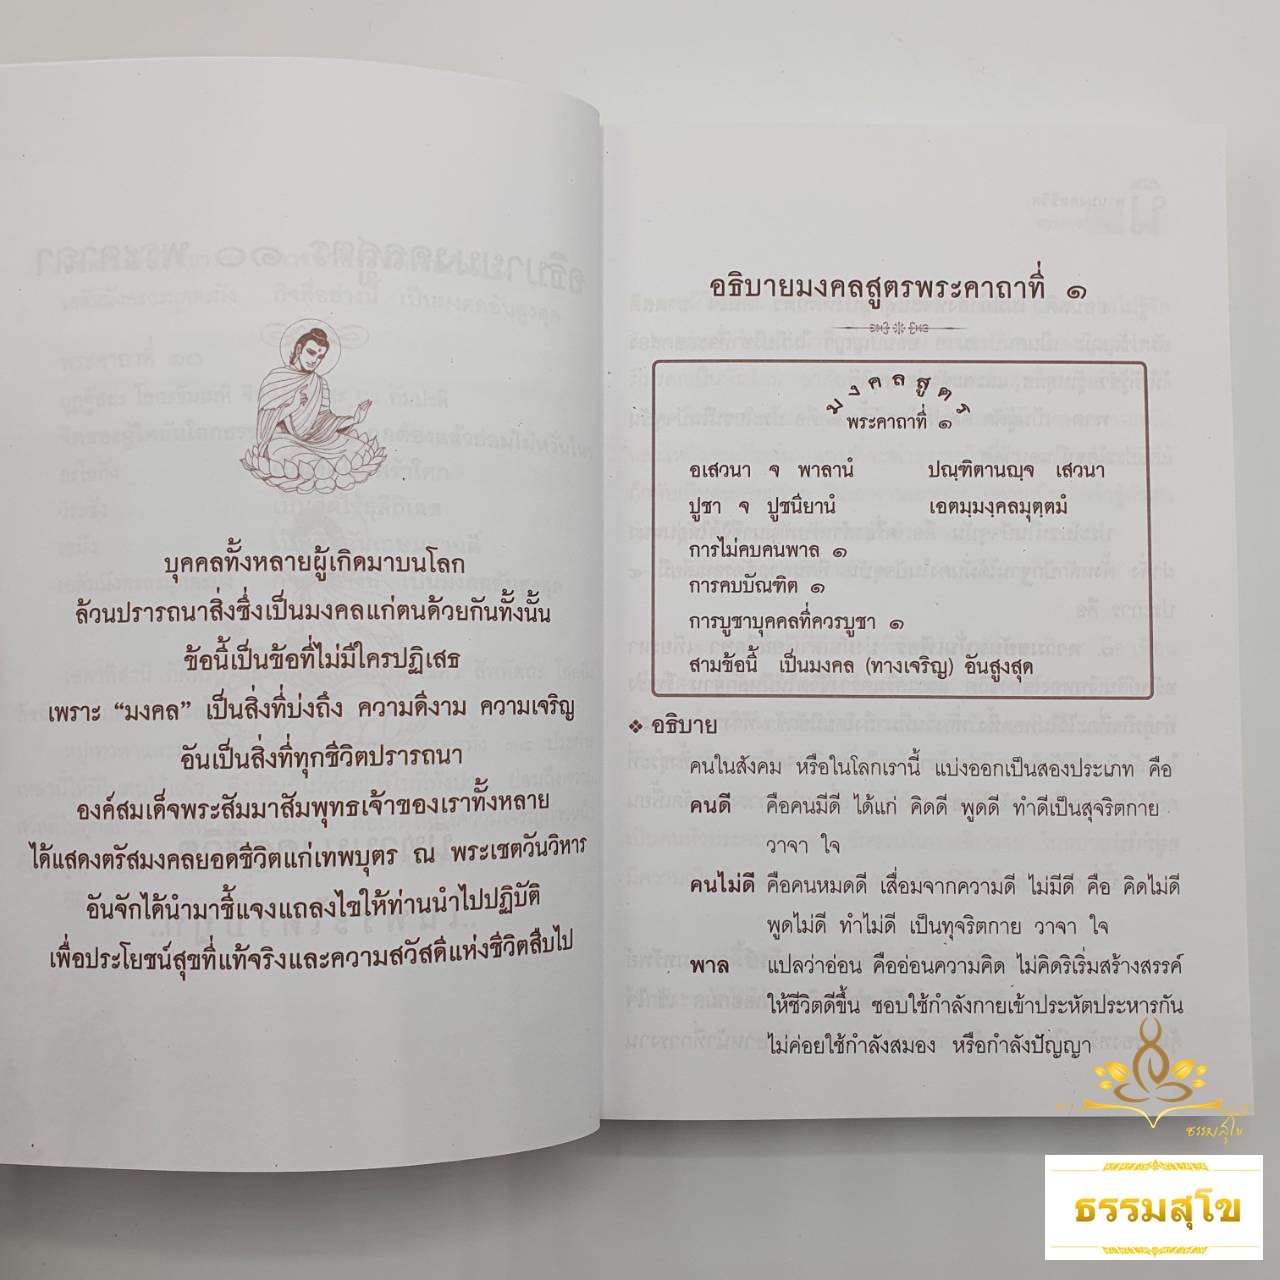 บุคคลทั้งหลายผู้เกิดมาบนโลก
ล้วนปรารถนาสิ่งซึ่งเป็นมงคลแก่ตนด้วยกันทั้งนั้น
ข้อนี้เป็นข้อที่ไม่มีใครปฏิเสธ
เพราะ “มงคล” เป็นสิ่งที่บ่งถึง ความดีงาม ความเจริญ
อันเป็นสิ่งที่ทุกชีวิตปรารถนา
องค์สมเด็จพระสัมมาสัมพุทธเจ้าของเราทั้งหลาย
ได้แสดงตรัสมงคลยอดชีวิตแก่เทพบุตร ณ พระเชตวันวิหาร
อันจักได้นำมาชี้แจงแถลงไขให้ท่านนำไปปฏิบัติ
เพื่อประโยชน์สุขที่แท้จริงและความสวัสดีแห่งชีวิตสืบไป
อธิบายมงคลสูตรพระคาถาที่ ๑
มงคลสูตร
พระคาถาที่ ๑
อเสวนา จ พาลานํ ปณฺฑิตานญฺจ เสวนา
ปูชา จ ปูชนียานํ เอตมฺมงฺคลมุตฺตมํ
การไม่คบคนพาล ๑
การคบบัณฑิต ๑
การบูชาบุคคลที่ควรบูชา ๑
สามข้อนี้ เป็นมงคล (ทางเจริญ) อันสูงสุด
❖ อธิบาย
คนในสังคม หรือในโลกเรานี้ แบ่งออกเป็นสองประเภท คือ
คนดี คือคนมีดี ได้แก่ คิดดี พูดดี ทำดีเป็นสุจริตกาย
วาจา ใจ
คนไม่ดี คือคนหมดดี เสื่อมจากความดี ไม่มีดี คือ คิดไม่ดี
พูดไม่ดี ทำไม่ดี เป็นทุจริตกาย วาจา ใจ
พาล แปลว่าอ่อน คืออ่อนความคิด ไม่คิดริเริ่มสร้างสรรค์
ให้ชีวิตดีขึ้น ชอบใช้กำลังกายเข้าประหัตประหารกัน
ไม่ค่อยใช้กำลังสมอง หรือกำลังปัญญา
ธรรมสุโข
ธรรมสุโข